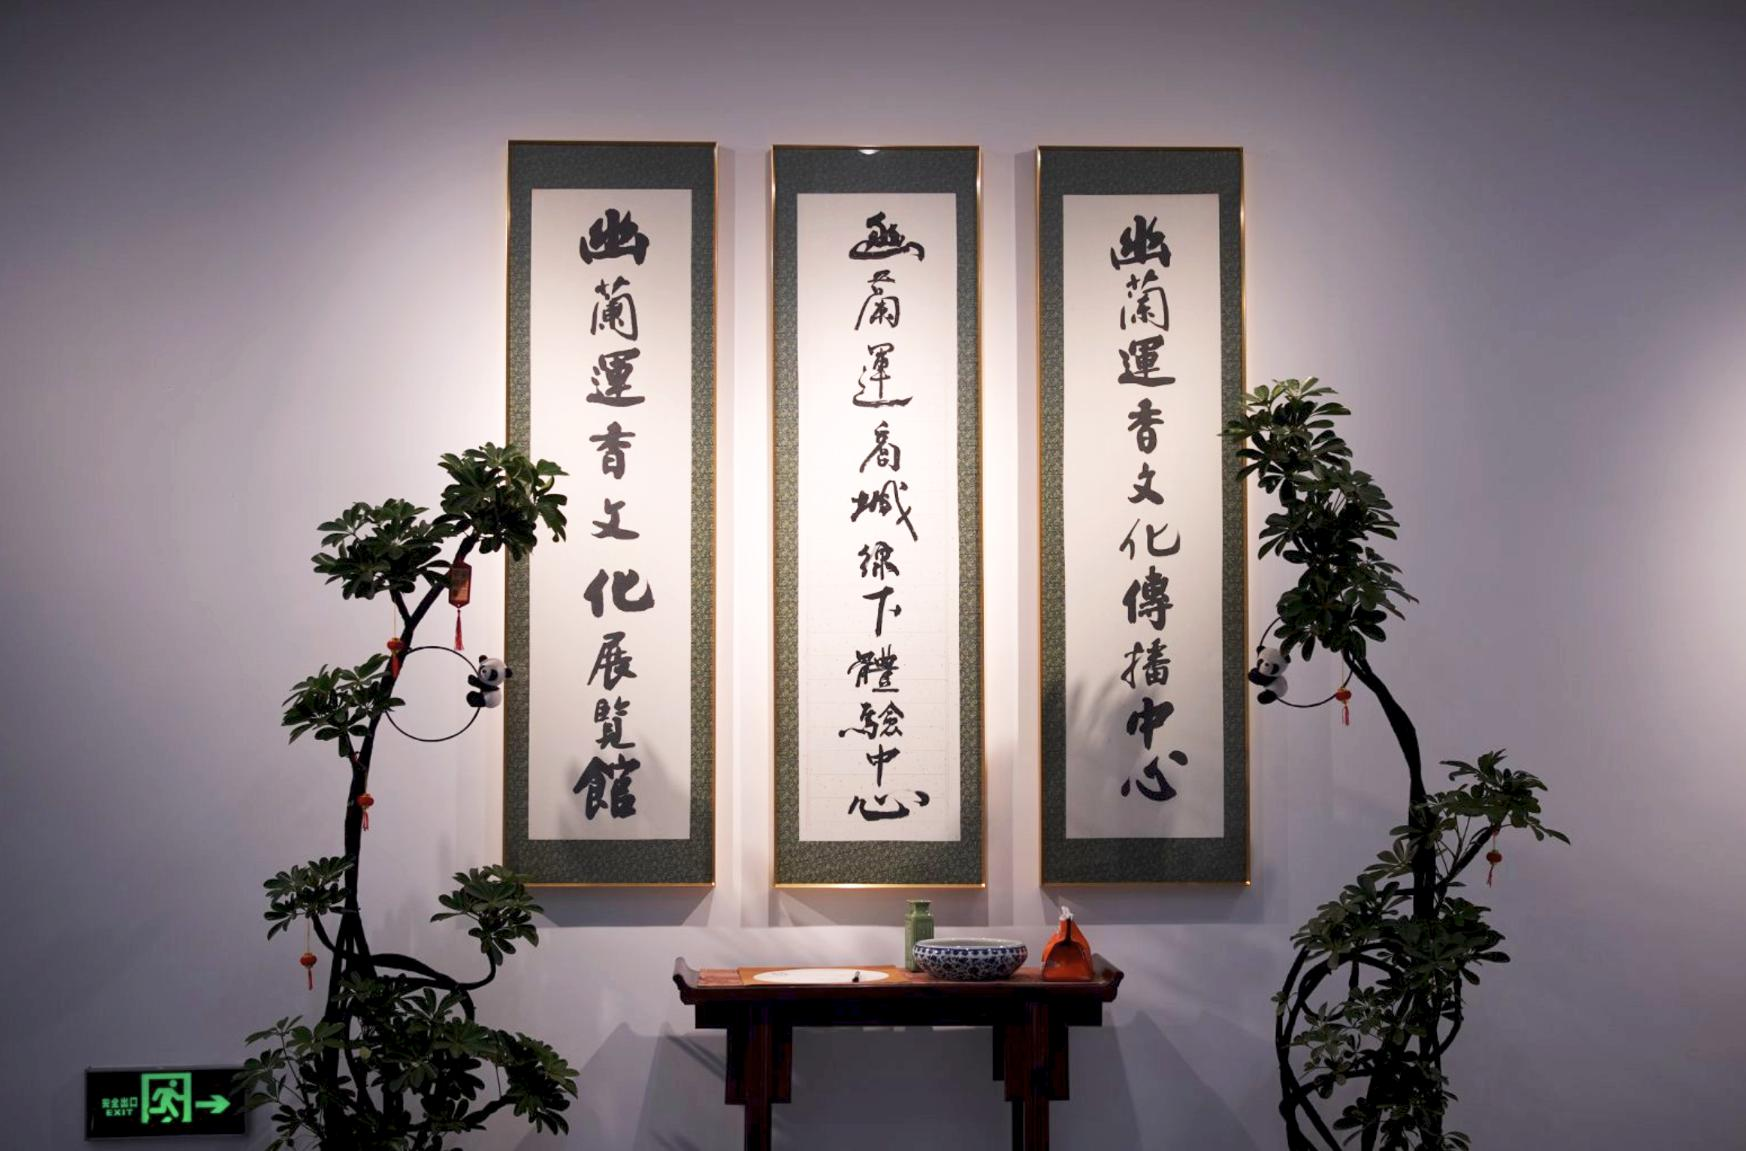 幽蘭運香文化展覽館
幽蘭運商城線下體驗中心
幽蘭運香文化傳播中心
安全出口
EXIT